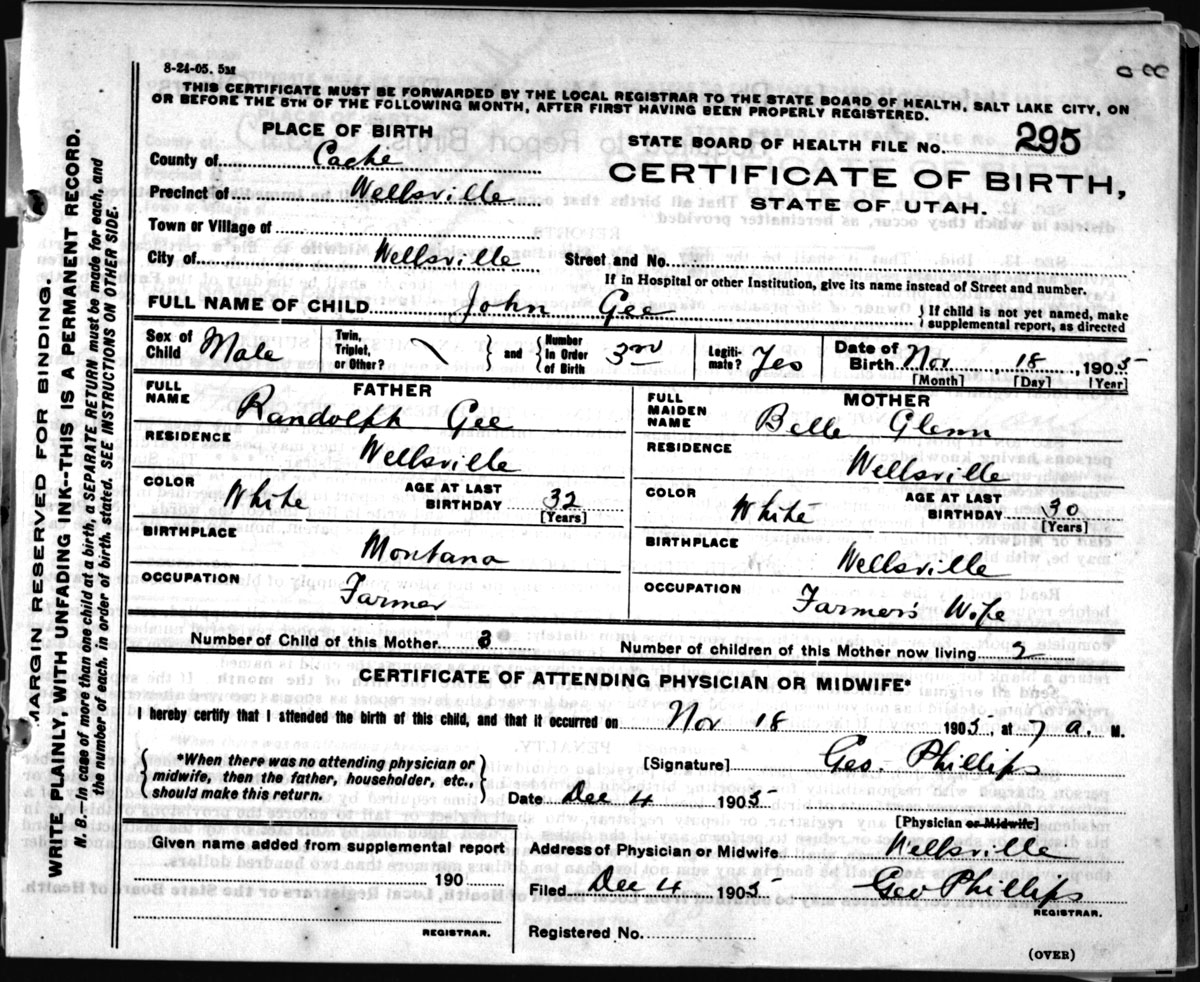 8-24-05. 5M
THIS CERTIFICATE MUST BE FORWARDED BY THE LOCAL REGISTRAR TO THE STATE BOARD OF HEALTH, SALT LAKE CITY, ON
OR BEFORE THE 5TH OF THE FOLLOWING MONTH, AFTER FIRST HAVING BEEN PROPERLY REGISTERED.
PLACE OF BIRTH
County of Cache
Precinct of Wellsville
Town or Village of
City of Wellsville
STATE BOARD OF HEALTH FILE NO. 295
CERTIFICATE OF BIRTH,
STATE OF UTAH.
Street and No.
If in Hospital or other Institution, give its name instead of Street and number.
FULL NAME OF CHILD John Gee
If child is not yet named, make
supplemental report, as directed
Sex of Child Male
Twin, Triplet, or Other?
and
Number in Order of Birth 3rd
Legitimate? Yes
Date of Birth Nov 18, 1905
[Month] [Day] [Year]
FATHER
FULL NAME Randolph Gee
RESIDENCE Wellsville
COLOR White
AGE AT LAST BIRTHDAY 32
[Years]
BIRTHPLACE Montana
OCCUPATION Farmer
MOTHER
FULL MAIDEN NAME Belle Glenn
RESIDENCE Wellsville
COLOR White
AGE AT LAST BIRTHDAY 30
[Years]
BIRTHPLACE Wellsville
OCCUPATION Farmer's Wife
Number of Child of this Mother 3
Number of children of this Mother now living 2
CERTIFICATE OF ATTENDING PHYSICIAN OR MIDWIFE*
I hereby certify that I attended the birth of this child, and that it occurred on Nov 18 1905, at 7 a. M.
*When there was no attending physician or
midwife, then the father, householder, etc.,
should make this return.
[Signature] Geo Phillips
Date Dec 4 1905
[Physician or Midwife]
Given name added from supplemental report
190
REGISTRAR.
Address of Physician or Midwife Wellsville
Filed Dec 4 1905 Geo Phillips
REGISTRAR.
Registered No.
(OVER)
MARGIN RESERVED FOR BINDING.
WRITE PLAINLY, WITH UNFADING INK--THIS IS A PERMANENT RECORD.
N. B.—In case of more than one child at a birth, a SEPARATE RETURN must be made for each, and
the number of each, in order of birth, stated. SEE INSTRUCTIONS ON OTHER SIDE.